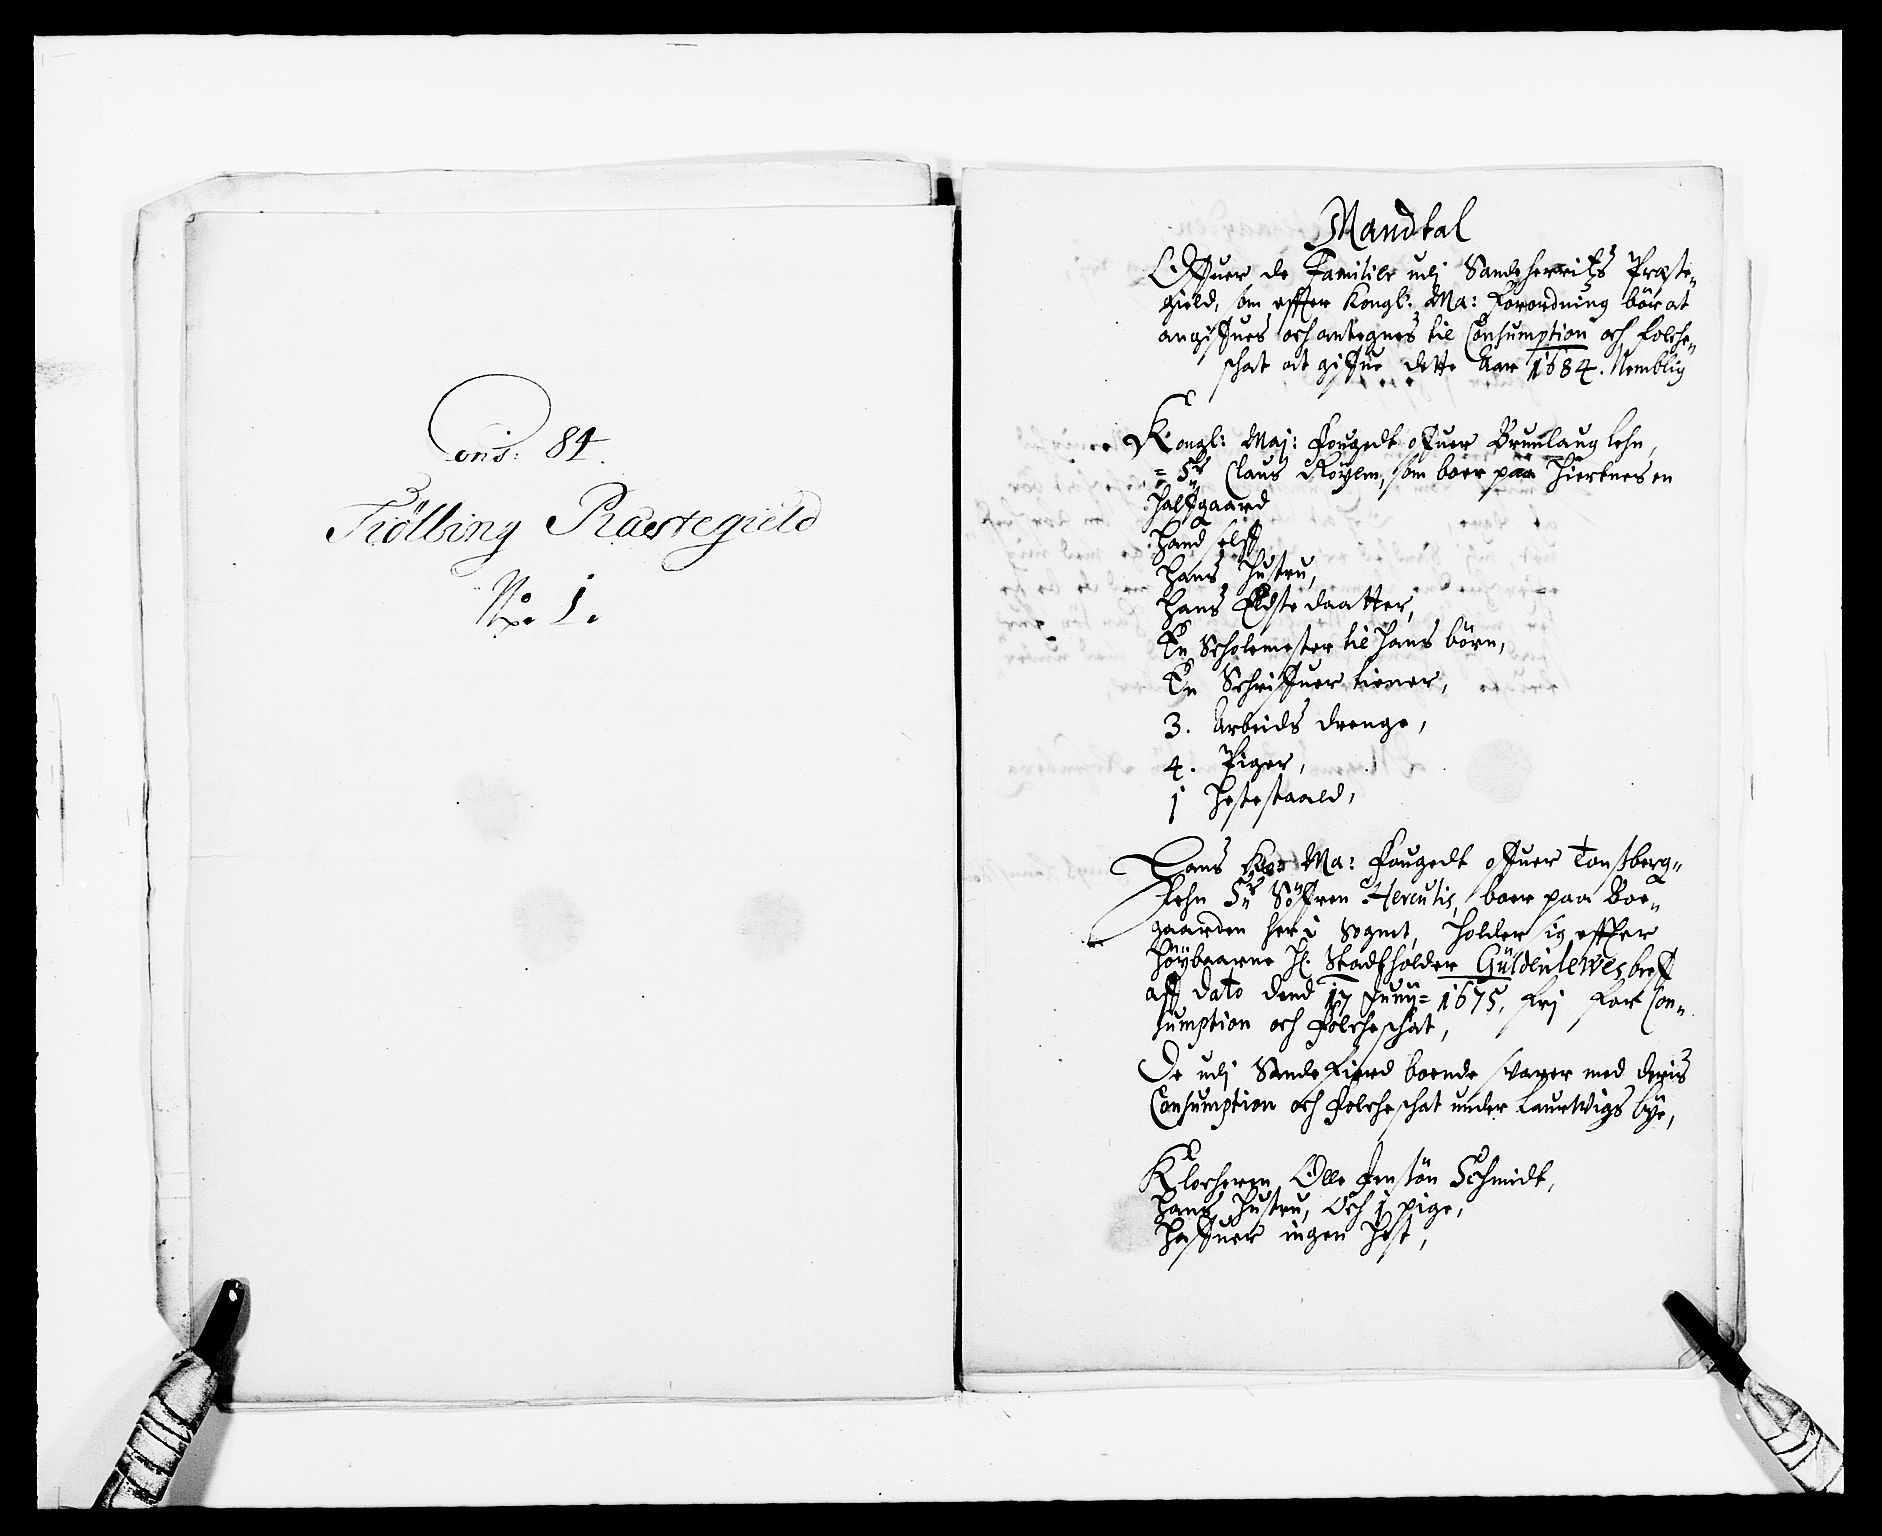 Cons: 84.
Tiølling Præstegield
No. 1.
Mandtal
Offuer de Familier udj Sandeherritz Præste-
gield, som effter Kongl: Ma: Forordning bör at
angiffues och antegnes til Consumption och folche-
schat at giffue dette Aar 1684. Nemblig
Kongl: Maj: Fougedt offuer Brunlaug lehn,
Sr Claus Röyem, som boer paa Hiertnes en
halffgaard
Hand self
Hans Hustru,
Hans Eldste daatter,
En Scholemester til Hans börn,
En Schriffuer tiener,
3. Arbeids drenge,
4. Piger,
j Hestestaald,
Hans Ko: Ma: Fougedt offuer Tonsberg-
Lehn Sr Söfren Herculis, boer paa Boe-
gaarden her i Sognet, holder sig effter
Höybaarne H. Stadtholder Güldenlewes breff
aff Dato dend 17 Junij 1675, frj for Con-
sumption och folcheschat,
De udj Sandefiord boende svarer med deris
Consumption och folcheschat under Laurwigs bye,
Klocheren Olle Jensön Schmidt,
Hans Hustru, Och j pige,
Haffuer ingen Hest,